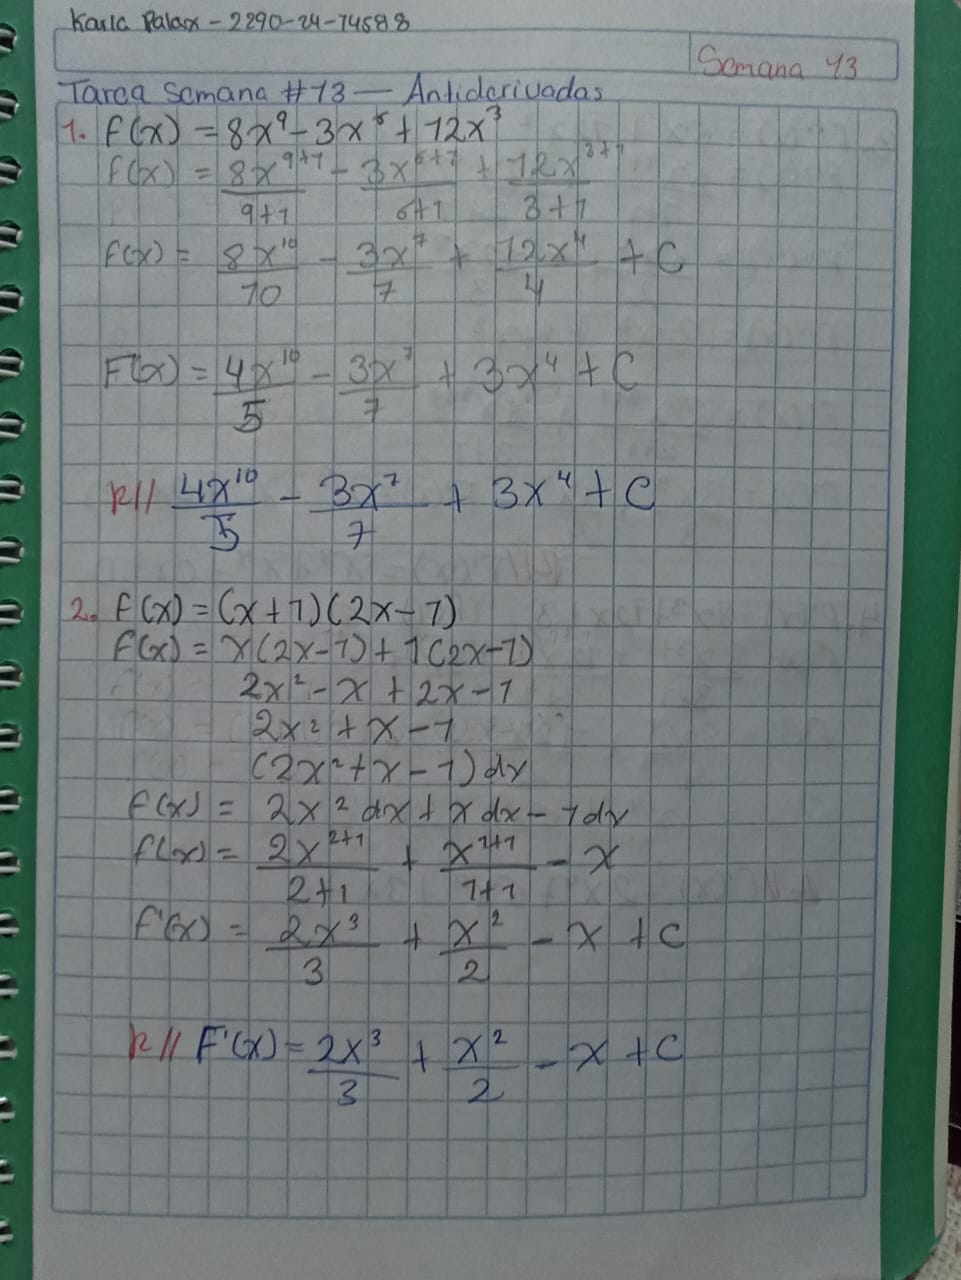 Karla Palax - 2290-24-14588
Semana 13
Tarea Semana #13 — Antiderivadas
1. f(x) = 8x⁹ - 3x⁶ + 12x³
f(x) = 8x⁹⁺¹/9+1 - 3x⁶⁺¹/6+1 + 12x³⁺¹/3+1
f(x) = 8x¹⁰/10 - 3x⁷/7 + 12x⁴/4 + C
F'(x) = 4x¹⁰/5 - 3x⁷/7 + 3x⁴ + C
R// 4x¹⁰/5 - 3x⁷/7 + 3x⁴ + C
2. f(x) = (x+1)(2x-1)
f(x) = x(2x-1) + 1(2x-1)
2x² - x + 2x - 1
2x² + x - 1
(2x² + x - 1) dx
f(x) = 2x² dx + x dx - 1 dx
f(x) = 2x²⁺¹/2+1 + x¹⁺¹/1+1 - x
f'(x) = 2x³/3 + x²/2 - x + C
R// F'(x) = 2x³/3 + x²/2 - x + C